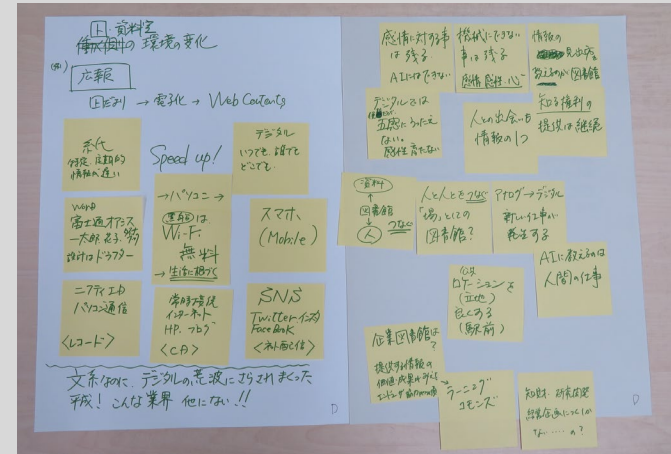 資料室
環境の変化
広報
だより → 電子化 → Web Contents
紙代
情報が遅い
Speed up!
デジタル
いつでも 誰でも
どこでも
Word
富士通オアシス
一太郎、花子
→パソコン→
は
Wi-Fi
無料
→生活に根づく
スマホ
(Mobile)
ニフティエ
パソコン通信
<レコード>
インターネット
HP, ブログ
<CD>
SNS
Twitter
FaceBook
<ネット配信>
文系なのに、デジタルの荒波にさらされまくった
平成! こんな業界 他にない!!
D
感情に対する事
は残る
AIにはできない
機械にできない
事は残る
感情 感性 心
情報の
図書館
デジタルでは
五感にうったえ
ない。
感性育たない
人との出会いも
情報の1つ
知る権利の
提供は継続
資料
↑
図書館
↓
人 つなぐ
人と人とをつなぐ
「場」としての
図書館?
アナログ→デジタル
新しい仕事が
発生する
AIに教えるのは
人間の仕事
ロケーションを
(立地)
良くする
(駅前)
企業図書館は?
提供する情報の
ラーニング
コモンズ
知財
D